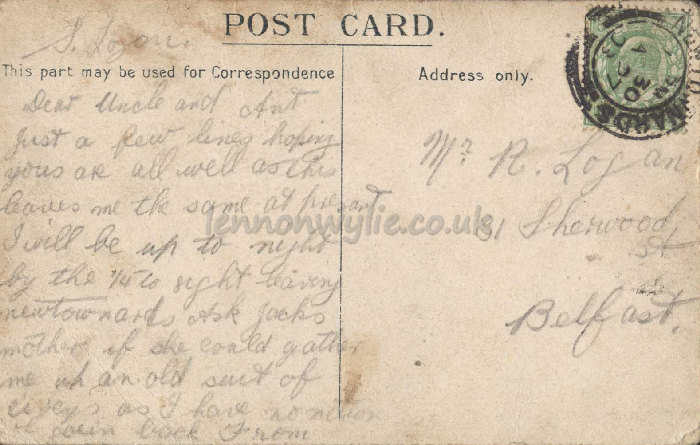 POST CARD.
S. Logan.
This part may be used for Correspondence
Address only.
Dear Uncle and Ant
Just a few lines hoping
yous are all well as this
leaves me the same at present
I will be up to night
by the 1/4 to eight leaving
newtownards Ask Jacks
mother if she could gather
me up an old suit of
as I have no
back From
Mr. R. Logan
31 Sherwood
St
Belfast.
lennonwylie.co.uk